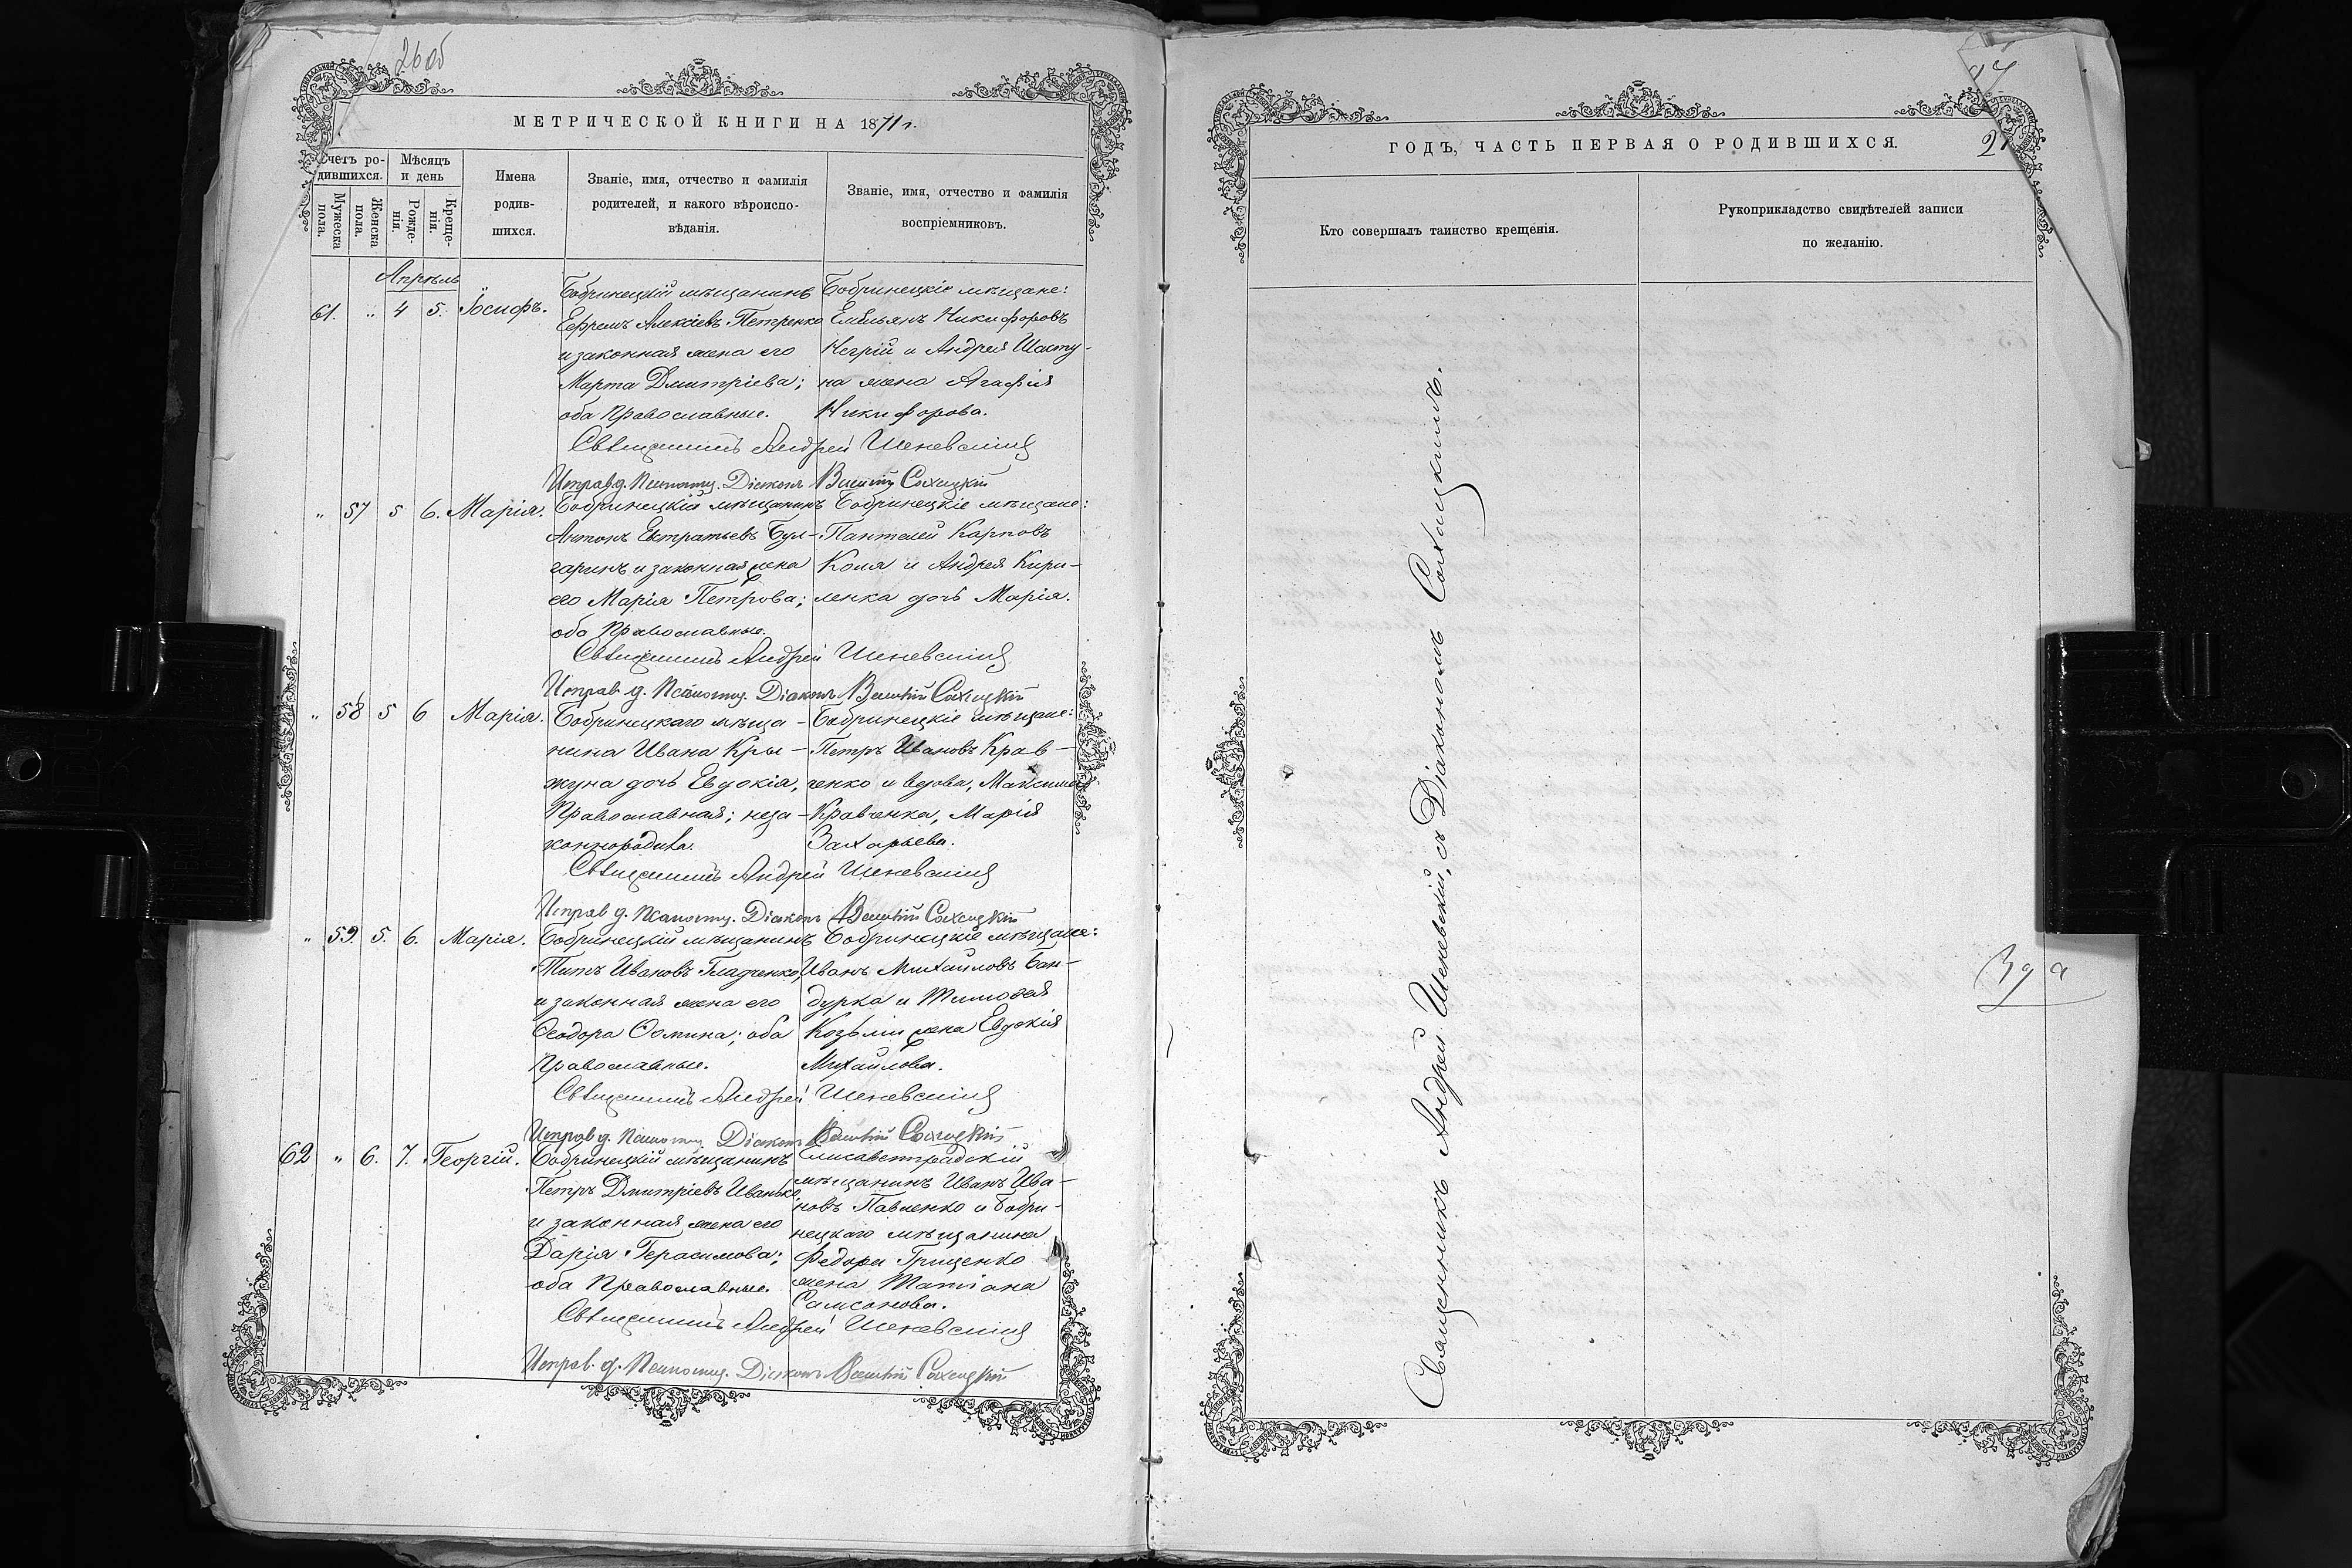 26 об
МЕТРИЧЕСКОЙ КНИГИ НА 1871 г.
Счетъ ро-
дившихся.
Мужеска пола.
Женска пола.
Мѣсяцъ
и день
Рожде-
нія.
Креще-
нія.
Имена
родив-
шихся.
Званіе, имя, отчество и фамилія
родителей, и какого вѣроиспо-
вѣданія.
Званіе, имя, отчество и фамилія
воспріемниковъ.
Апрѣль
61. " 4 5. Іосифъ.
Бобринецкій мѣщанинъ
Ефремъ Алексіевъ Петренко
и законная жена его
Марта Дмитріева;
оба Православные.
Бобринецкіе мѣщане:
Емельянъ Никифоровъ
Негрій и Андрея Шасту-
на жена Агафія
Никифорова.
Священникъ Андрей Шеневскій
Исправ. д. Псаломщ. Діаконъ Сохацкій
" 57 5 6. Марія.
Бобринецкій мѣщанинъ
Антонъ Евтратьевъ Бул-
гаринъ и законная жена
его Марія Петрова;
оба Православные.
Бобринецкіе мѣщане:
Пантелей Карповъ
Коля и Андрея Кири-
ленка дочь Марія.
Священникъ Андрей Шеневскій
Исправ. д. Псаломщ. Діаконъ Сохацкій
" 58 5 6 Марія.
Бобринецкаго мѣща-
нина Ивана Кры-
жуна дочь Евдокія,
Православная; неза-
коннорожд.
Бобринецкіе мѣщане:
Петръ Ивановъ Крав-
ченко и вдова, Максима
Кравченка, Марія
Захарьева.
Священникъ Андрей Шеневскій
Исправ. д. Псаломщ. Діаконъ Сохацкій
" 59. 5. 6. Марія.
Бобринецкій мѣщанинъ
Титъ Ивановъ Гладченко
и законная жена его
Ѳеодора Ѳомина; оба
Православные.
Бобринецкіе мѣщане:
Иванъ Михаиловъ Бан-
дурка и Тимоѳея
Козьми жена Евдокія
Михаилова.
Священникъ Андрей Шеневскій
Исправ. д. Псаломщ. Діаконъ Сохацкій
62 " 6. 7. Георгій.
Бобринецкій мѣщанинъ
Петръ Дмитріевъ Иванько
и законная жена его
Дарія Герасимова;
оба Православные.
Елисаветградскій
мѣщанинъ Иванъ Ива-
новъ Павленко и Бобри-
нецкаго мѣщанина
Федора Грищенко
жена Татіана
Самсонова.
Священникъ Андрей Шеневскій
Исправ. д. Псаломщ. Діаконъ Сохацкій
27
ГОДЪ, ЧАСТЬ ПЕРВАЯ О РОДИВШИХСЯ.
Кто совершалъ таинство крещенія.
Рукоприкладство свидѣтелей записи
по желанію.
Священникъ Андрей Шеневскій, съ Діакономъ Сохацкимъ.